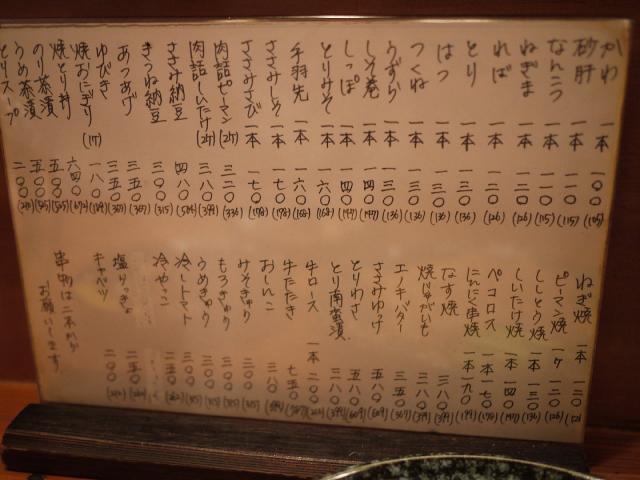 かわ 一本 一〇〇 (105)
砂肝 一本 一一〇 (115)
なんこつ 一本 一一〇 (115)
ねぎま 一本 一二〇 (126)
ればー 一本 一二〇 (126)
とり 一本 一三〇 (136)
はつ 一本 一三〇 (136)
つくね 一本 一三〇 (136)
うずら 一本 一三〇 (136)
しそ巻 一本 一四〇 (147)
しっぽ 一本 一四〇 (147)
とりみそ 一本 一六〇 (168)
手羽先 一本 一六〇 (168)
ささみしそ 一本 一七〇 (178)
ささみさび 一本 一七〇 (178)
肉詰ピーマン (2ケ) 三二〇 (336)
肉詰しいたけ (2ケ) 三八〇 (399)
ささみ納豆 四八〇 (504)
きつね納豆 三〇〇 (315)
あつあげ 三五〇 (367)
ゆびき 三五〇 (367)
焼おにぎり (1ケ) 一八〇 (189)
焼とり丼 六四〇 (672)
のり茶漬 五〇〇 (525)
うめ茶漬 五〇〇 (525)
とりスープ 二〇〇 (210)
ねぎ焼 一本 一二〇 (126)
ピーマン焼 一ケ 一二〇 (126)
ししとう焼 一本 一三〇 (136)
しいたけ焼 一本 一四〇 (147)
ペコロス 一本 一七〇 (178)
にんにく串焼 一本 一九〇 (199)
なす焼 三八〇 (399)
焼じゃがいも 三八〇 (399)
エノキバター 三五〇 (367)
ささみゆっけ 五八〇 (609)
とりわさ 五八〇 (609)
とり南蛮漬 三八〇 (399)
牛ロース 一本 二〇〇 (210)
牛たたき 七五〇 (787)
おしんこ 三八〇 (399)
みそきゅり 三〇〇 (315)
もろきゅり 三〇〇 (315)
うめきゅり 三〇〇 (315)
冷しトマト 三〇〇 (315)
冷やっこ 二五〇 (262)
塩らっきょ 二五〇 (262)
キャベツ 二〇〇 (210)
串物は二本から
お願いします